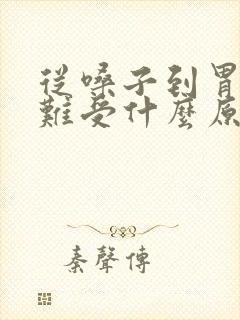 從嗓子到胃
難受什麼原
秦聲傳